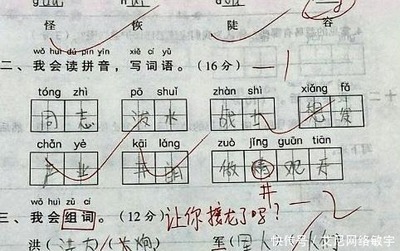 怪 恢 陡 容
wǒ huì dú pīn yīn xiě cí yǔ
二、我会读拼音，写词语。（16分） — 1
tóng zhì pō shuǐ zhàn shì xiǎng fǎ
同 志 泼 水 战 士
chǎn yè kāi lǎng zuò jǐng guān tiān
产 业 开 朗 做 观 天
井
wǒ huì zǔ cí
三、我会组词。（12分） 让你接龙了吗？ — 2
洪（洪大）（ 炮） 军（
快传号/艾尼网络敏宇